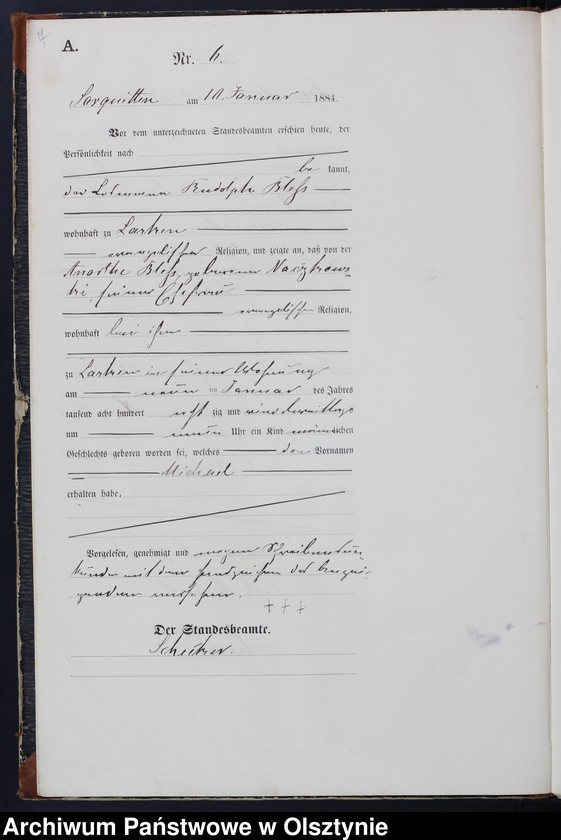 A.
Nr. 6.
Sorquitten am 10. Januar 1884.
Vor dem unterzeichneten Standesbeamten erschien heute, der
Persönlichkeit nach
be kannt,
der Losmann Rudolph Bless
wohnhaft zu
evangelischer Religion, und zeigte an, daß von der
Bless, geborenen
seiner Ehefrau
evangelischer Religion,
wohnhaft bei ihm
zu in seiner Wohnung
am neun ten Januar des Jahres
tausend acht hundert acht zig und vier Vormittags
um neun Uhr ein Kind männlichen
Geschlechts geboren worden sei, welches den Vornamen
Michael
erhalten habe.
Vorgelesen, genehmigt und wegen Schreibensun-
kunde mit dem Handzeichen des Anzei-
genden versehen.
+++
Der Standesbeamte.
Archiwum Państwowe w Olsztynie